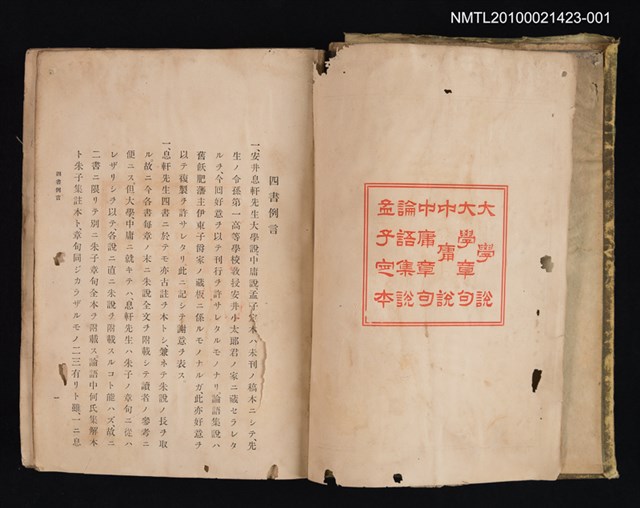 NMTL20100021423-001
大學說
大學章句
中庸說
中庸章句
論語集說
孟子定本
四書例言
一、安井息軒先生大學說中庸說孟子定本ハ未刊ノ稿本ニシテ、先
生ノ令孫第一高等學校敎授安井小太郎君ノ家ニ藏セラレタ
ルヲ、今回好意ヲ以テ刊行ヲ許サレタルモノナリ論語集說ハ
舊飫肥藩主伊東子爵家ノ藏板ニ係ルモノナルガ、此亦好意ヲ
以テ複製ヲ許サレタリ、此ニ記シテ謝意ヲ表ス
一、息軒先生四書ニ於テモ亦古註ヲ本トシ、兼ネテ朱說ノ長ヲ取
ル故ニ今各書每章ノ末ニ朱說全文ヲ附載シテ讀者ノ參考ニ
便ニス但大學中庸ニ就キテハ、息軒先生ハ朱子ノ章句ニ從ハ
レザリシヲ以テ、各說ニ直ニ朱說ヲ附載スルコト能ハズ、故ニ
二書ニ限リテ別ニ朱子章句全本ヲ附載ス論語中何氏集解本
ト朱子集註本ト、章句同ジカラザルモノ二三有リト雖、一ニ息
四書例言
一